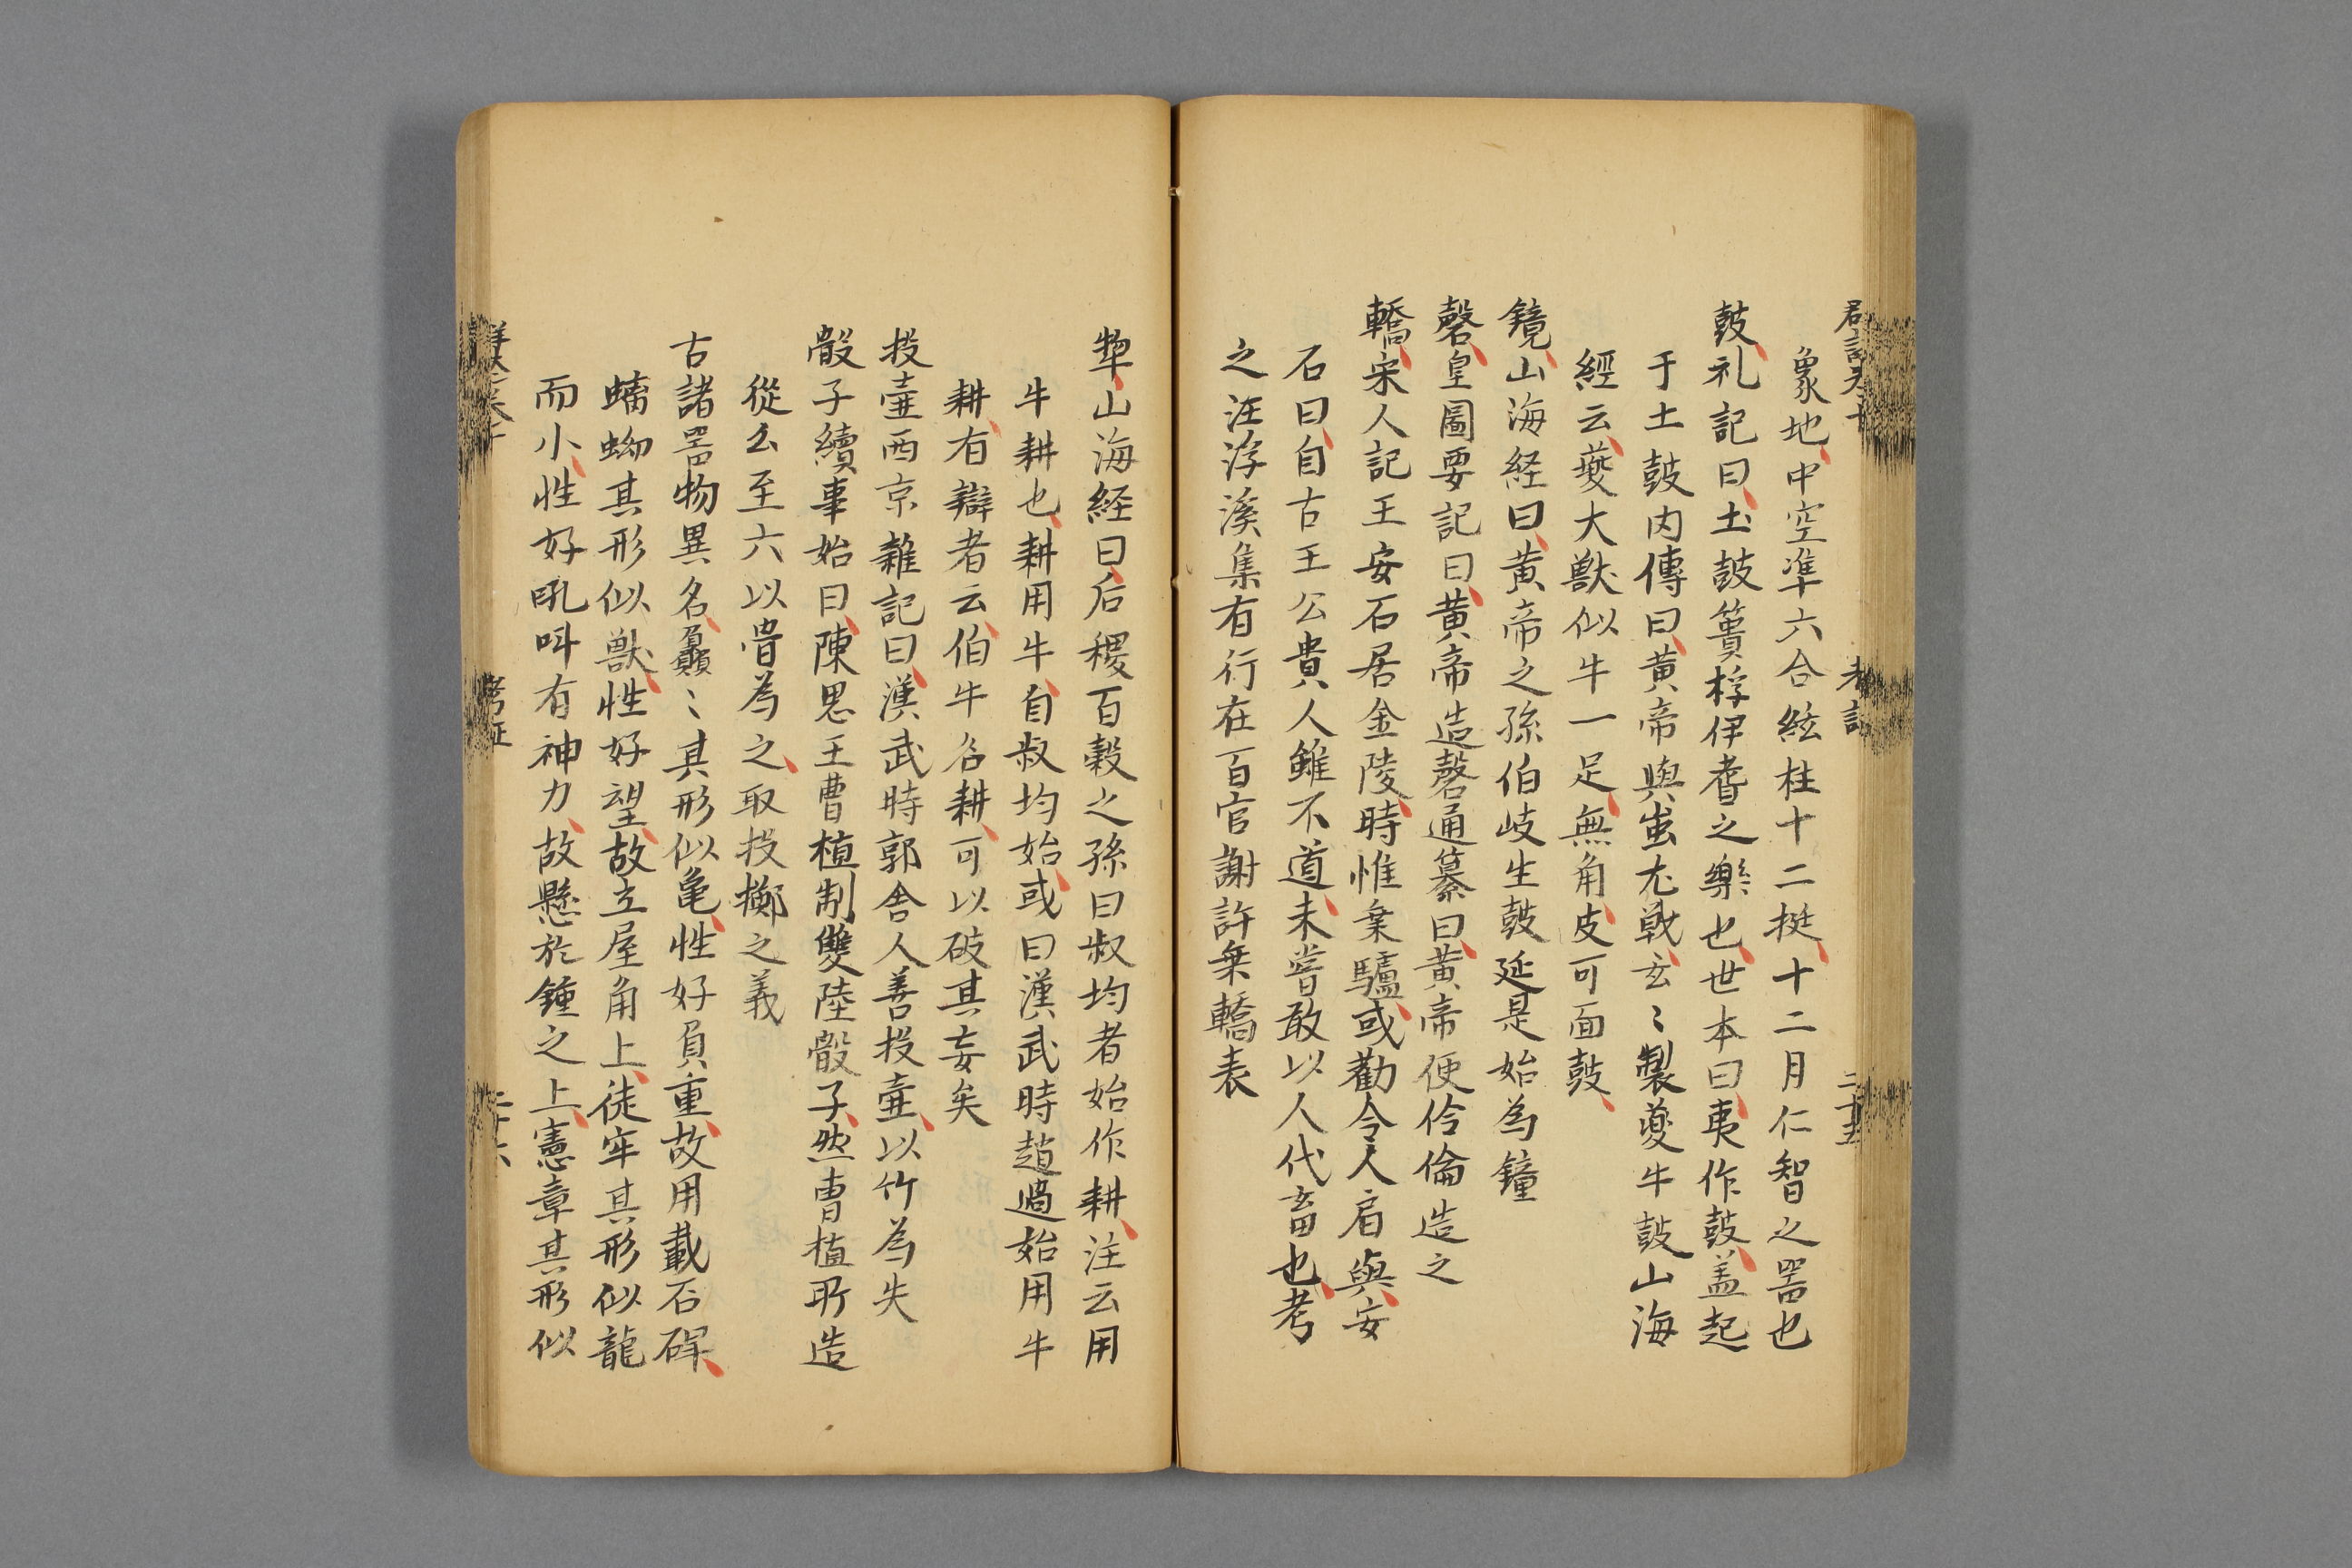 象地中空準六合絃柱十二挺十二月仁智之噐也
鼓礼記曰土鼓蕢桴伊耆之樂也世本曰夷作鼓盖起
于土鼓内傳曰黄帝與蚩尤戰玄〻製夔牛鼓山海
經云夔大獸似牛一足無角皮可面鼓
鐘山海経曰黄帝之孫伯岐生鼓延是始為鐘
磬皇圖要記曰黄帝造磬通纂曰黄帝使伶倫造之
轎宋人記王安石居金陵時惟乗驢或勸令人肩與安
石曰自古王公貴人雖不道未嘗敢以人代畜也考
之汪浮溪集有行在百官謝許乗轎表
犂山海経曰后稷百穀之孫曰叔均者始作耕注云用
牛耕也耕用牛自叔均始或曰漢武時趙過始用牛
耕有辯者云伯牛名耕可以破其妄矣
投壷西京雜記曰漢武時郭舍人善投壷以竹為失
骰子續事始曰陳思王曹植制雙陸骰子然曹植所造
從幺至六以骨為之取投擲之義
古諸噐物異名贔屭〻其形似龜性好負重故用載石碑
螭蚴其形似獸性好望故立屋角上徒牢其形似龍
而小性好吼呌有神力故懸於鐘之上憲章其形似
考証
二十六